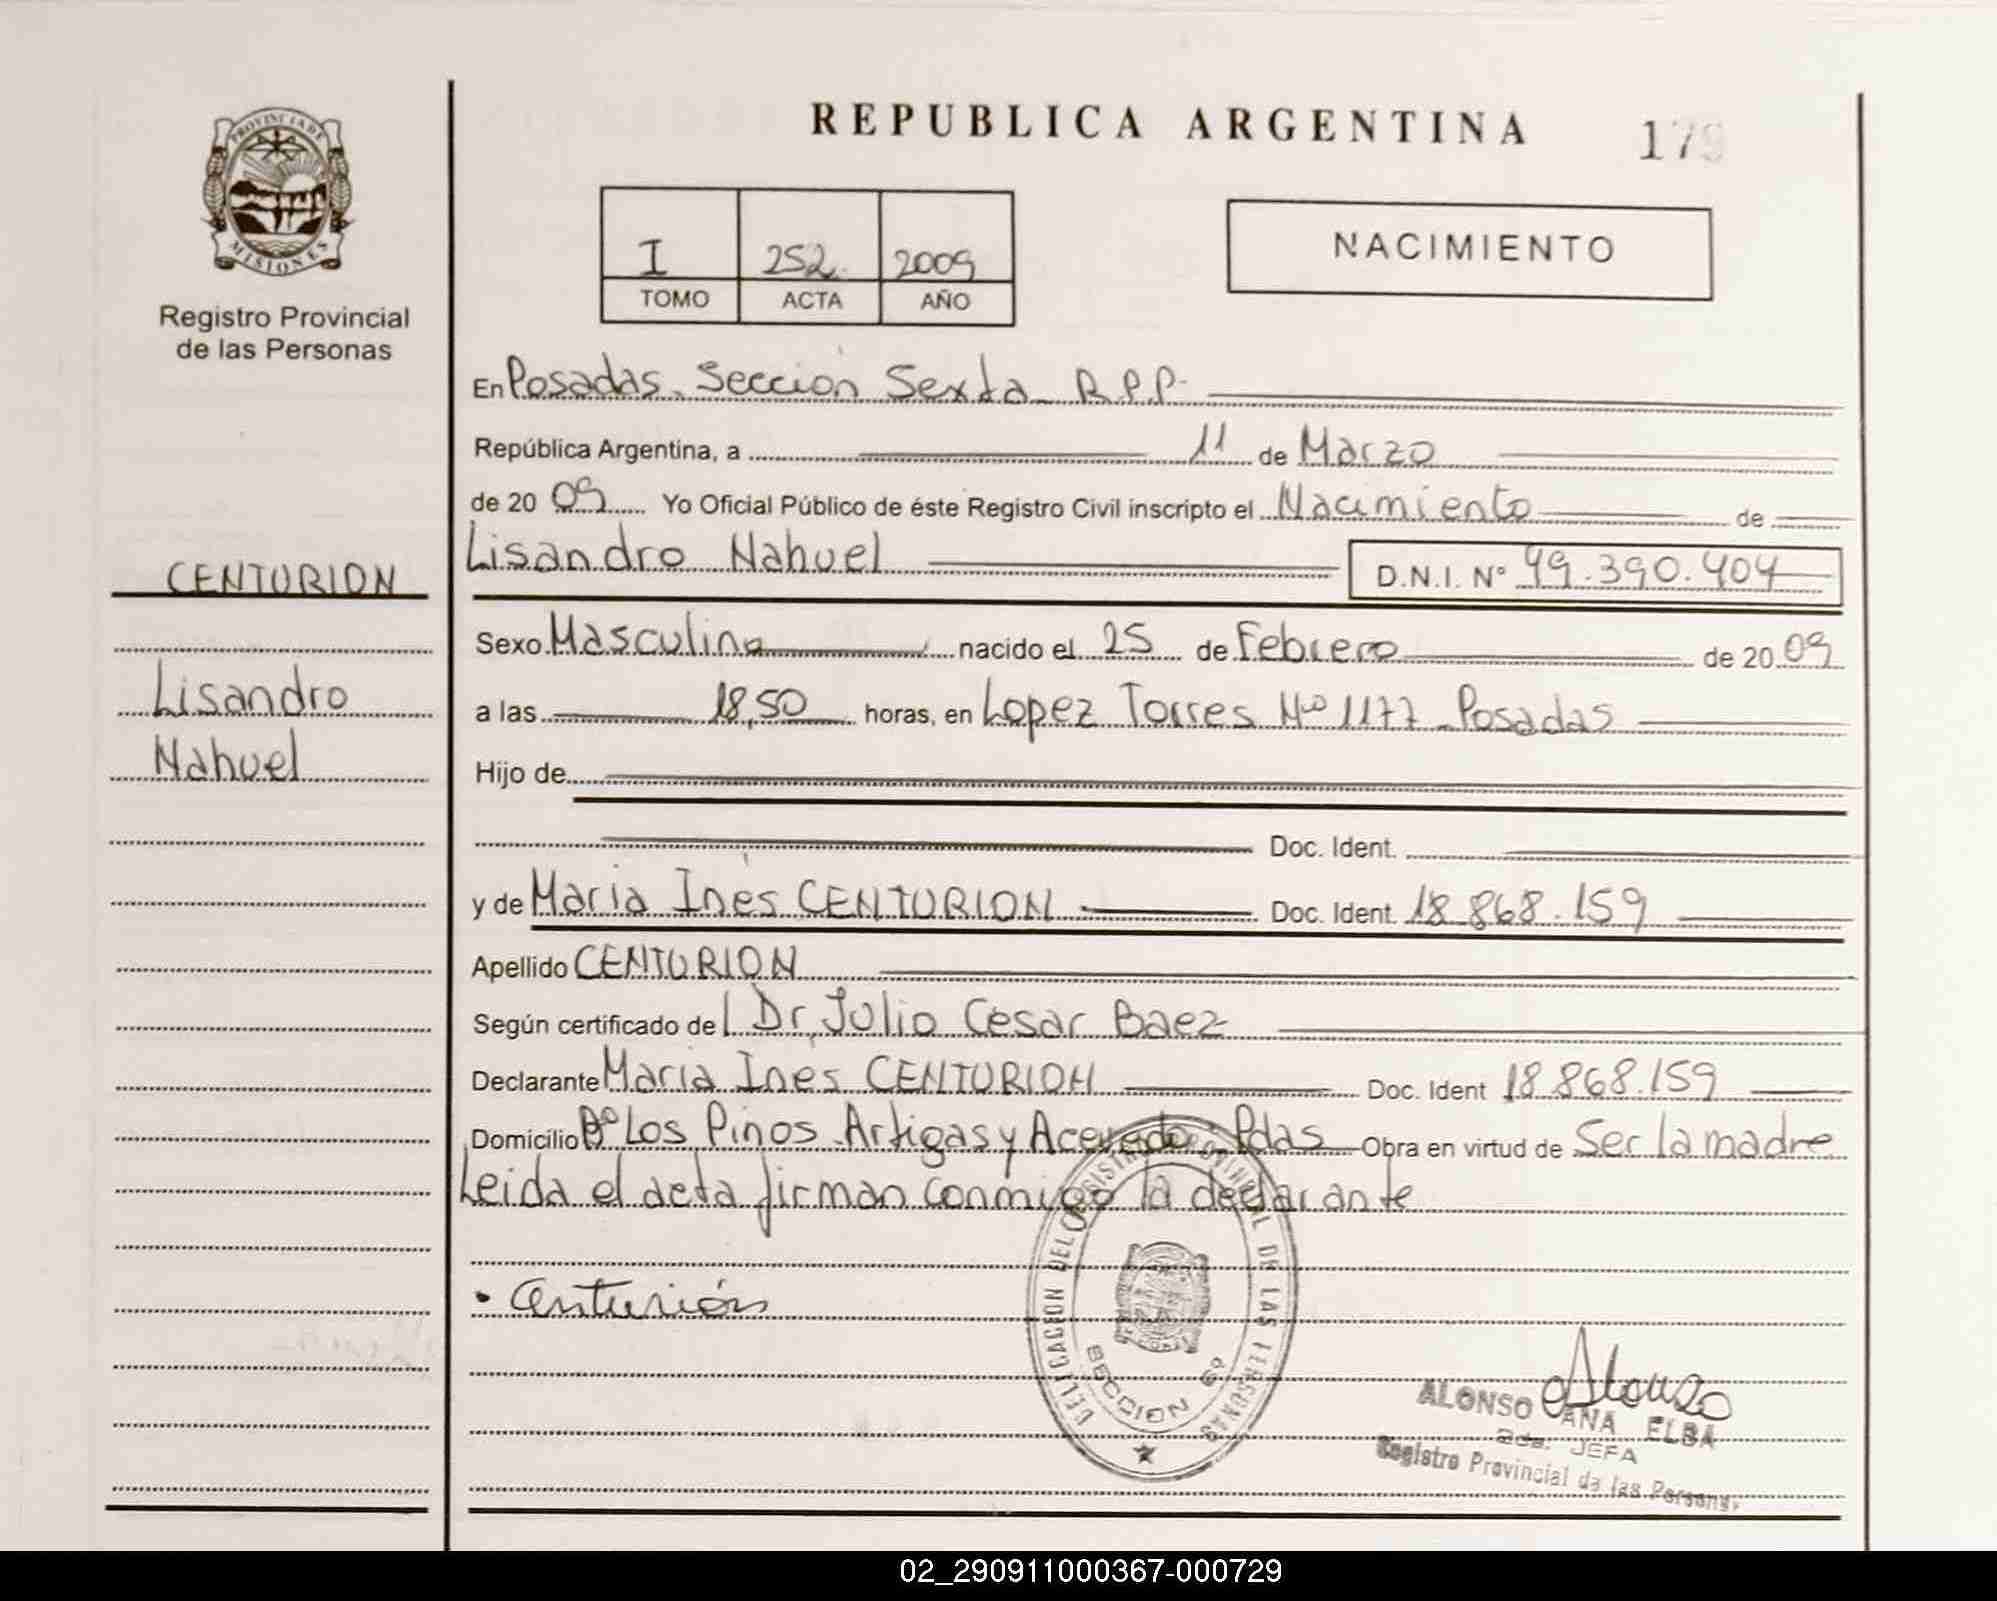 REPUBLICA ARGENTINA
179
PROVINCIA DE
MISIONES
Registro Provincial
de las Personas
I 252. 2009
TOMO ACTA AÑO
NACIMIENTO
En Posadas. Sección Sexta R.P.P.
República Argentina, a 11 de Marzo
de 20 09 Yo Oficial Público de éste Registro Civil inscripto el Nacimiento de
Lisandro Nahuel D.N.I. Nº 49.390.404
CENTURION
Lisandro
Nahuel
Sexo Masculino nacido el 25 de Febrero de 20 09
a las 18,50 horas, en Lopez Torres Nº 1177 Posadas
Hijo de
Doc. Ident.
y de Maria Inés CENTURION Doc. Ident. 18.868.159
Apellido CENTURION
Según certificado del Dr. Julio Cesar Baez
Declarante Maria Inés CENTURION Doc. Ident 18.868.159
Domicilio Bº Los Pinos Artigas y Acevedo Pdas Obra en virtud de Ser la madre
Leida el acta firman conmigo la declarante
Centurión
DELEGACION DEL REGISTRO PROVINCIAL DE LAS PERSONAS
SECCION 6º
Alonso
ALONSO ANA ELBA
2da. JEFA
Registro Provincial de las Personas
02_290911000367-000729